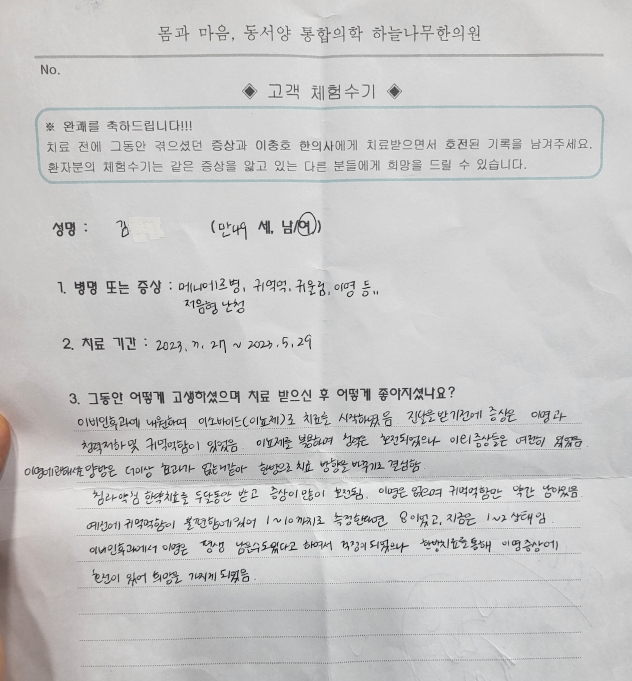 몸과 마음, 동서양 통합의학 하늘나무한의원
No.
◈ 고객 체험수기 ◈
※ 완쾌를 축하드립니다!!!
치료 전에 그동안 겪으셨던 증상과 이충호 한의사에게 치료받으면서 호전된 기록을 남겨주세요.
환자분의 체험수기는 같은 증상을 앓고 있는 다른 분들에게 희망을 드릴 수 있습니다.
성명 : 김 (만49 세, 남/여)
1. 병명 또는 증상 : 메니에르병, 귀먹먹, 귀울림, 이명 등..
저음형 난청
2. 치료 기간 : 2023. 4. 27 ~ 2023. 5. 29
3. 그동안 어떻게 고생하셨으며 치료 받으신 후 어떻게 좋아지셨나요?
이비인후과에 내원하여 이소바이드(이뇨제)로 치료를 시작하였음. 진단을 받기전에 증상은 이명과
청력저하 및 귀먹먹함이 있었음. 이뇨제를 복용하여 청력은 호전되었으나 이외 증상들은 여전히 있었음.
양방은 더이상 효과가 없는것같아 한방으로 치료 방향을 바꾸기로 결심함.
침과 약침 한약치료를 두달동안 받고 증상이 많이 호전됨. 이명은 없으며 귀먹먹함만 약간 남아있음.
예전에 귀먹먹함이 불편함에 있어 1~10까지로 측정한다면 8이었고, 지금은 1~2 상태임.
이비인후과에서 이명은 평생 남을수도있다고 하여서 걱정이 되었으나 한방치료를 통해 이명증상에
호전이 있어 희망을 가지게 되었음.